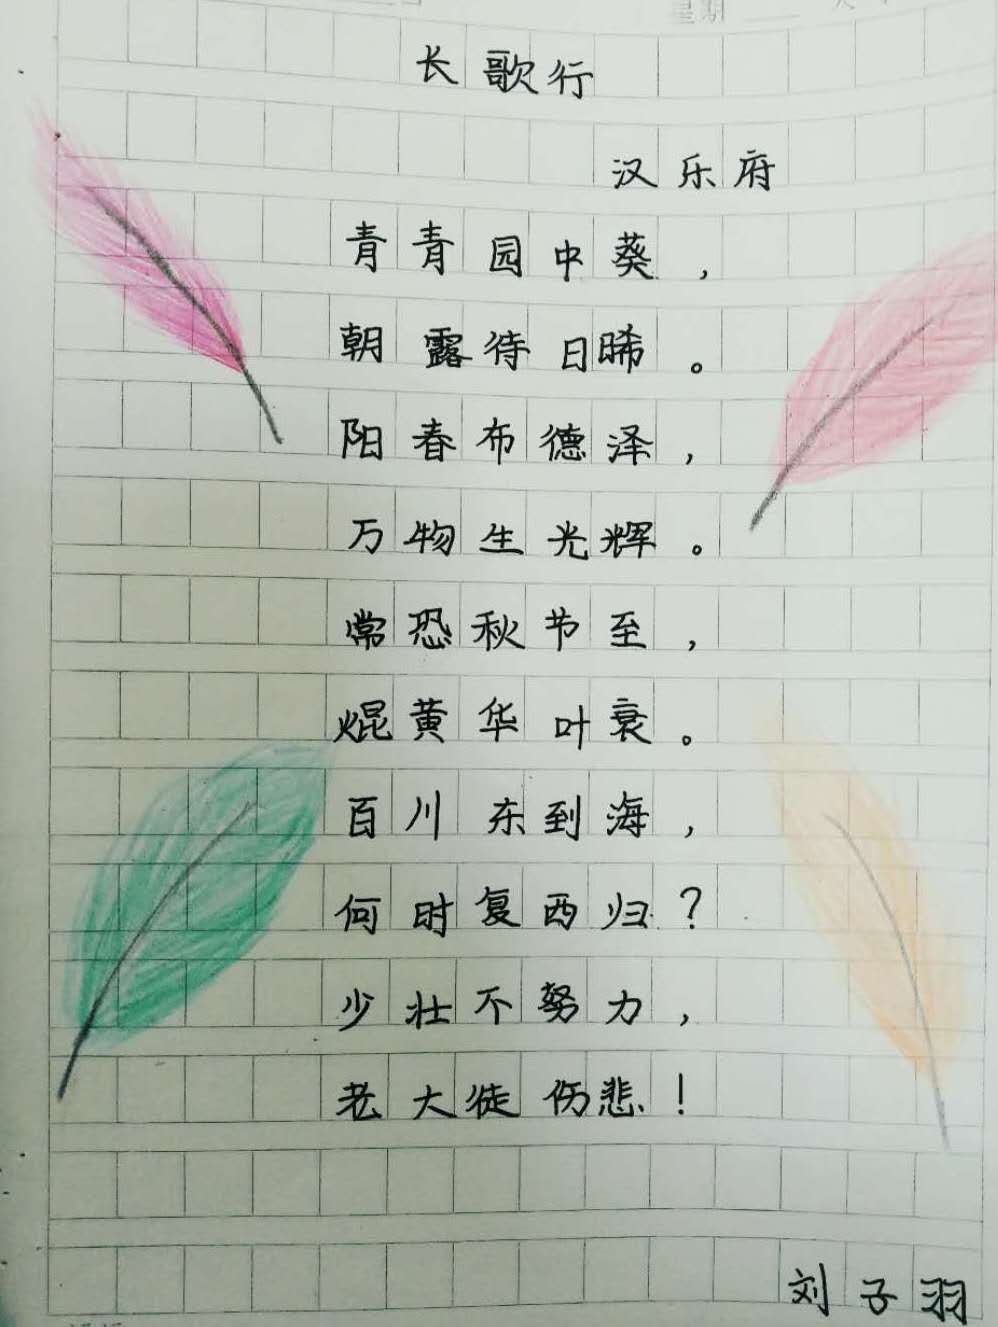 星期
长歌行
汉乐府
青青园中葵，
朝露待日晞。
阳春布德泽，
万物生光辉。
常恐秋节至，
焜黄华叶衰。
百川东到海，
何时复西归？
少壮不努力，
老大徒伤悲！
刘子羽